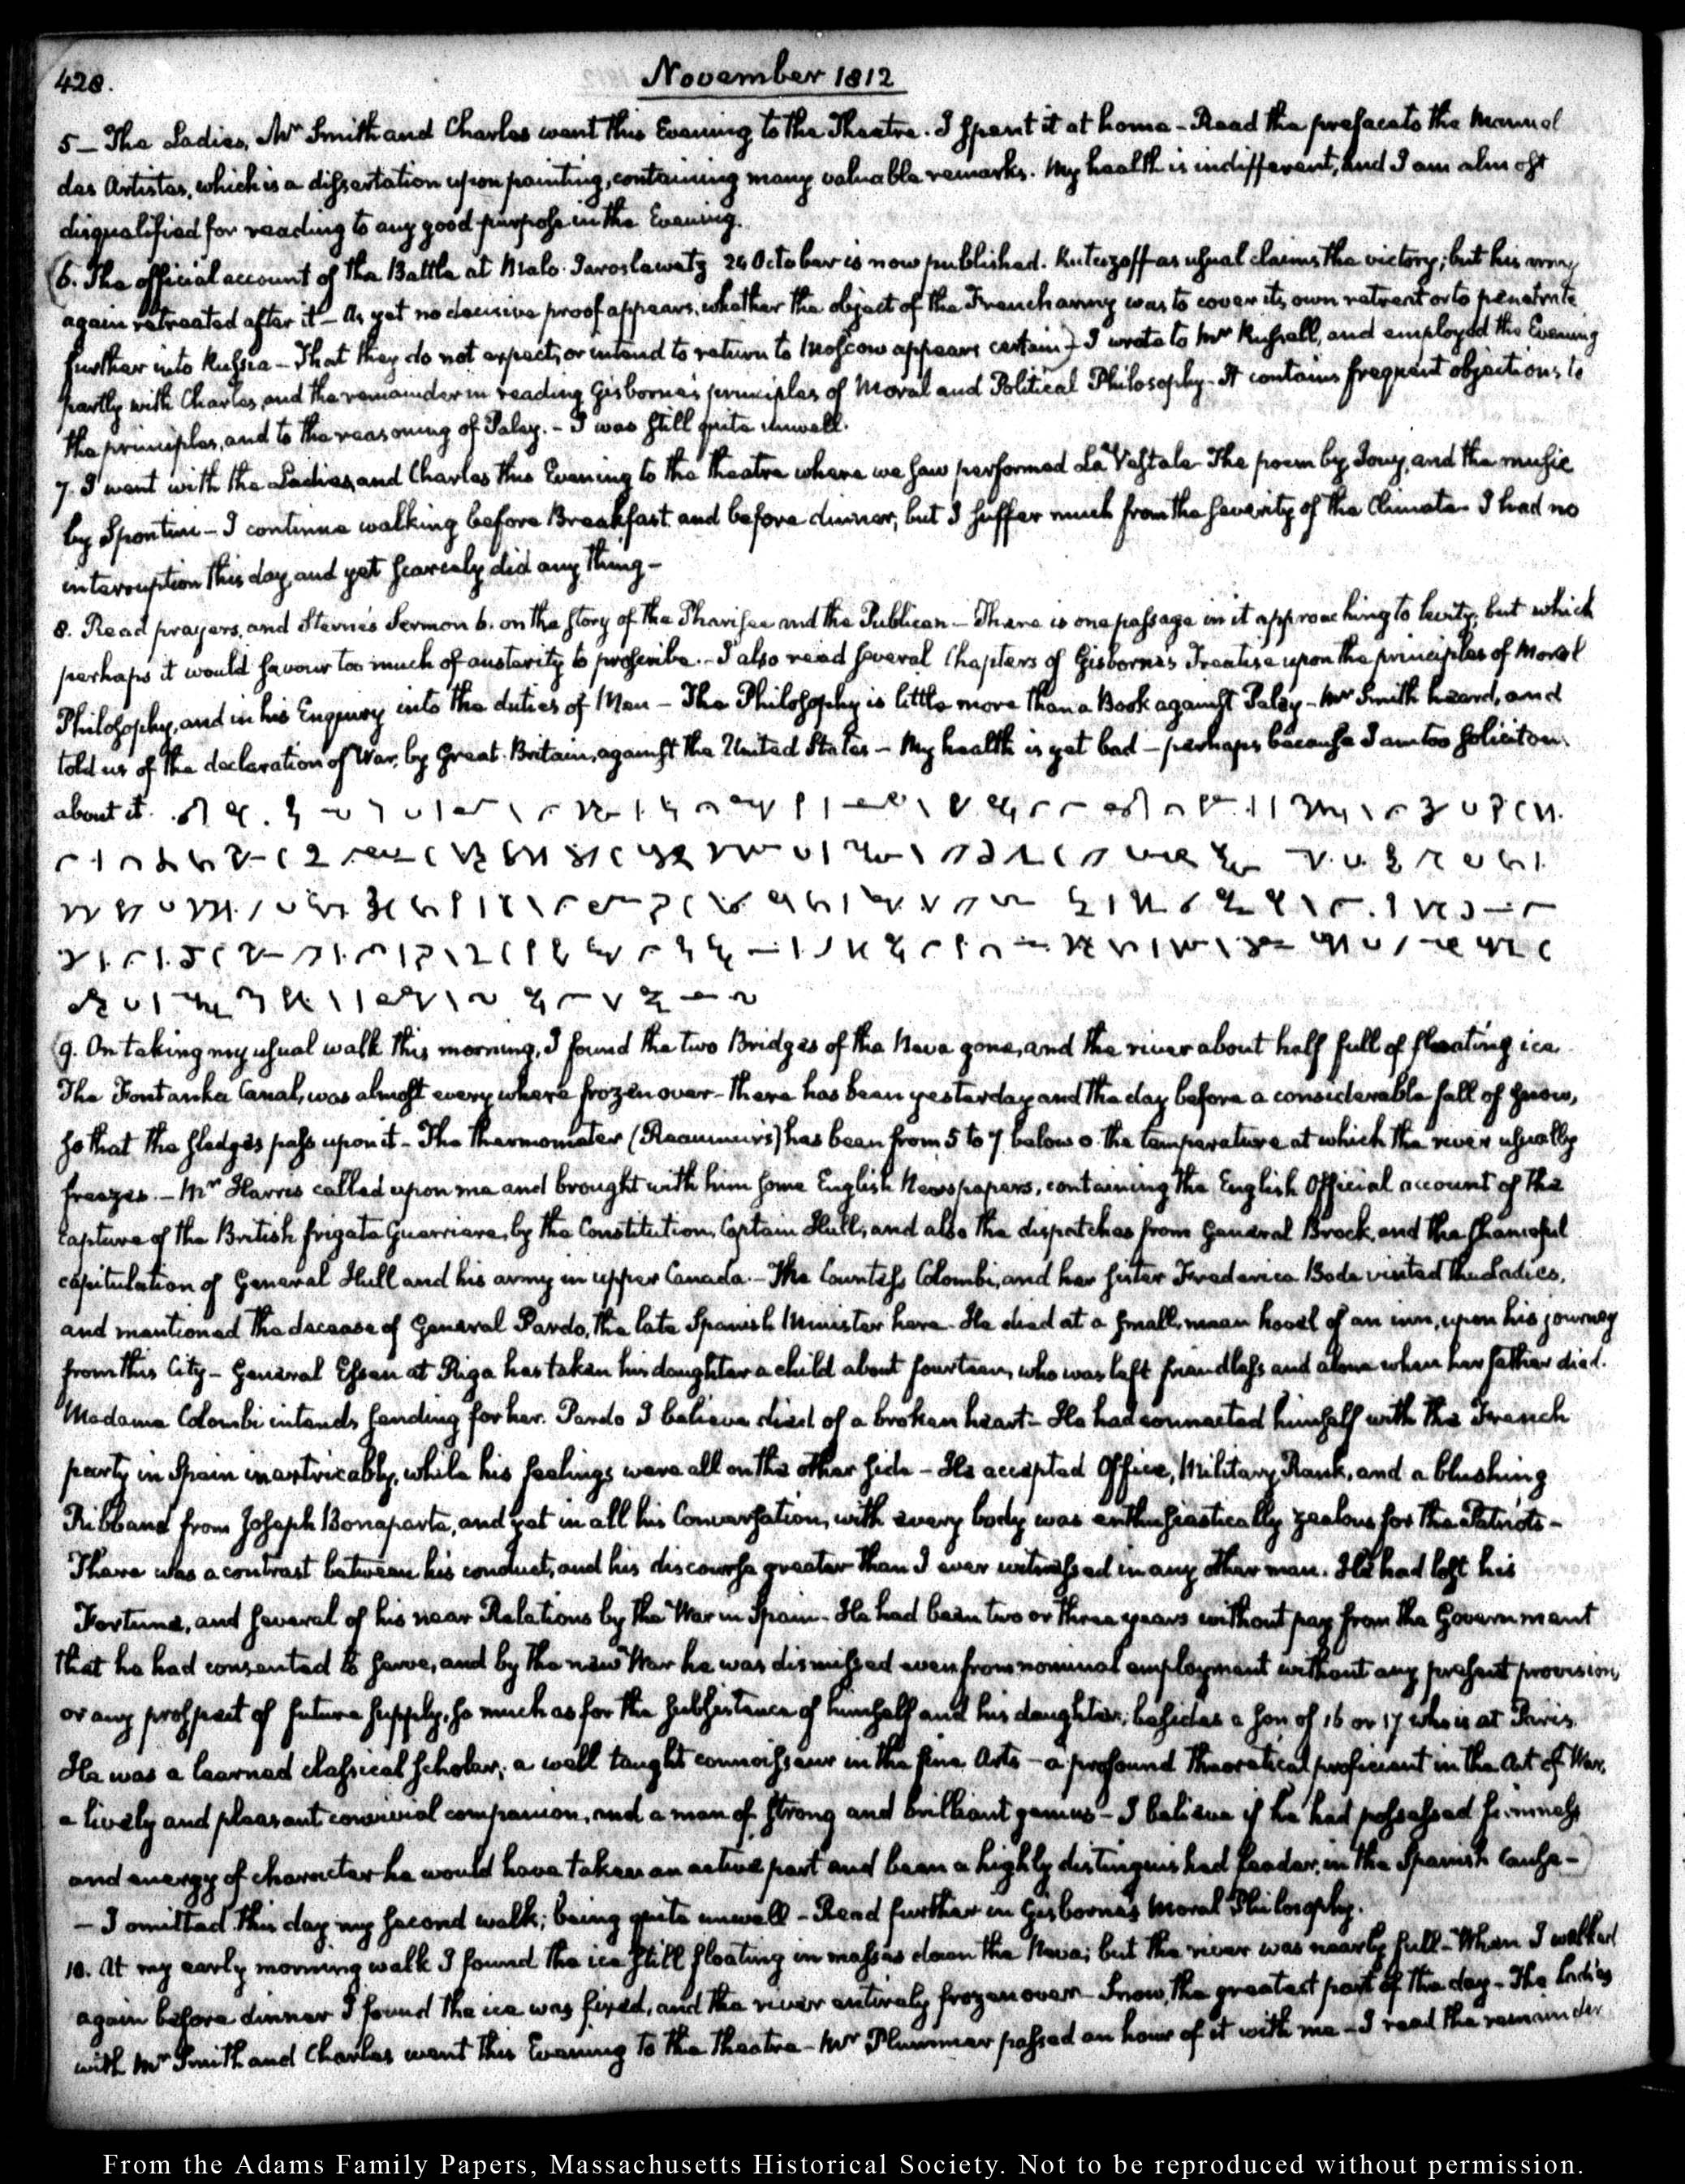 428.
November 1812
5 — The Ladies, Mr Smith and Charles went this Evening to the Theatre. I spent it at home - Read the preface to the Manuel
des Artistes, which is a dissertation upon painting, containing many valuable remarks. My health is indifferent, and I am almost
disqualified for reading to any good purpose in the Evening.
(6. The official account of the Battle at Malo-Jaroslawetz 24 October is now published. Kutuzoff as usual claims the victory; but his army
again retreated after it — As yet no decisive proof appears, whether the object of the French army was to cover its own retreat or to penetrate
further into Russia — That they do not expect, or intend to return to Moscow appears certain) I wrote to Mr Russell, and employed the Evening
partly with Charles, and the remainder in reading Gisborne's principles of Moral and Political Philosophy - It contains frequent objections to
the principles, and to the reasoning of Paley. - I was still quite unwell.
7. I went with the Ladies, and Charles this Evening to the theatre where we saw performed La Vestale - The poem by Jouy, and the music
by Spontini - I continue walking before Breakfast and before dinner, but I suffer much from the severity of the Climate - I had no
interruption this day, and yet scarcely did any thing -
8. Read prayers, and Sterne's Sermon 6. on the story of the Pharisee and the Publican - There is one passage in it approaching to levity, but which
perhaps it would savour too much of austerity to proscribe. - I also read several Chapters of Gisborne's Treatise upon the principles of Moral
Philosophy, and in his Enquiry into the duties of Men — The Philosophy is little more than a Book against Paley - Mr Smith heard, and
told us of the declaration of War, by Great-Britain, against the United States — My health is yet bad — perhaps because I am too solicitous
about it.
(9. On taking my usual walk this morning, I found the two Bridges of the Neva gone, and the river about half full of floating ice.
The Fontanka Canal, was almost every where frozen over - there has been yesterday and the day before a considerable fall of snow,
so that the sledges pass upon it - The thermometer (Reaumur's) has been from 5 to 7 below 0. the temperature at which the river usually
freezes. — Mr Harris called upon me and brought with him some English Newspapers, containing the English Official account of the
capture of the British frigate Guerriere, by the Constitution, Captain Hull, and also the dispatches from General Brock, and the shameful
capitulation of General Hull and his army in upper Canada. - The Countess Colombi, and her sister Frederica Bode visited the Ladies,
and mentioned the decease of General Pardo, the late Spanish Minister here. He died at a small, mean hovel of an inn, upon his journey
from this City - General Essen at Riga has taken his daughter a child about fourteen, who was left friendless and alone when her father died.
Madame Colombi intends sending for her. Pardo I believe died of a broken heart - He had connected himself with the French
party in Spain inextricably, while his feelings were all on the other side - He accepted Office, Military Rank, and a blushing
Ribband from Joseph Bonaparte, and yet in all his Conversation, with every body was enthusiastically zealous for the Patriots -
There was a contrast between his conduct, and his discourse greater than I ever witnessed in any other man. He had lost his
Fortune, and several of his near Relations by the War in Spain - He had been two or three years without pay from the Government
that he had consented to serve, and by the new War he was dismissed even from nominal employment without any present provision,
or any prospect of future supply, so much as for the subsistence of himself and his daughter, besides a son of 16 or 17 who is at Paris.
He was a learned classical scholar; a well taught connoisseur in the fine Arts - a profound theoretical proficient in the Art of War,
a lively and pleasant convivial companion, and a man of strong and brilliant genius - I believe if he had possessed firmness
and energy of character he would have taken an active part and been a highly distinguished leader, in the Spanish Cause - )
- I omitted this day my second walk; being quite unwell - Read further in Gisborne's Moral Philosophy.
10. At my early morning walk I found the ice still floating in masses down the Neva; but the river was nearly full - When I walked
again before dinner I found the ice was fixed, and the river entirely frozen over - Snow, the greatest part of the day - The Ladies
with Mr Smith and Charles went this Evening to the Theatre - Mr Plummer passed an hour of it with me - I read the remainder
From the Adams Family Papers, Massachusetts Historical Society. Not to be reproduced without permission.